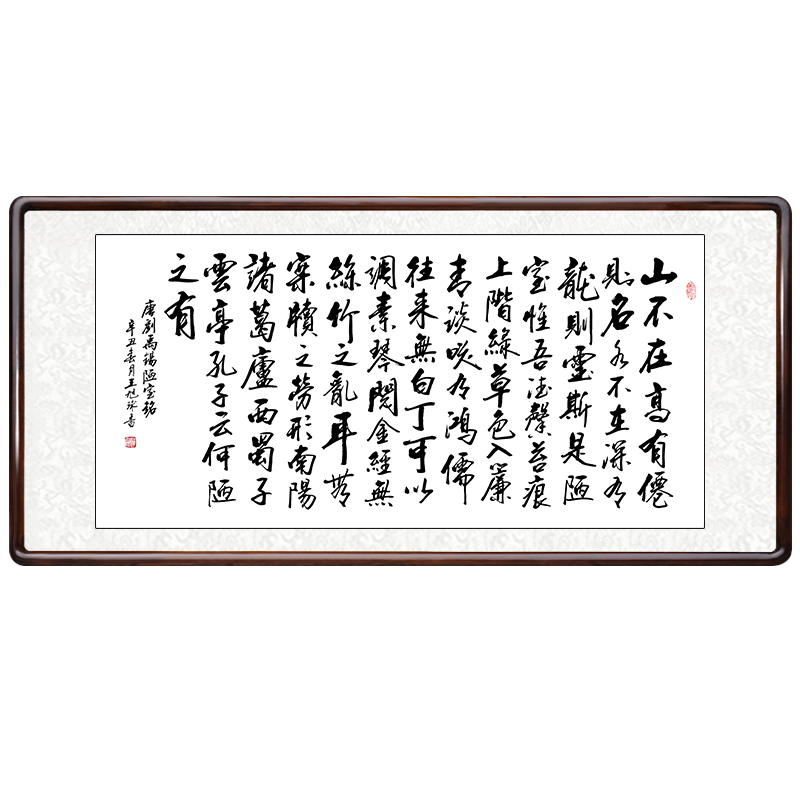 山不在高有僊
則名水不在深有
龍則靈斯是陋
室惟吾德馨苔痕
上階綠草色入簾
青談咲有鴻儒
往来無白丁可以
調素琴閱金經無
絲竹之亂耳無
案牘之勞形南陽
諸葛廬西蜀子
雲亭孔子云何陋
之有
唐劉禹錫陋室銘
辛丑春月王旭書